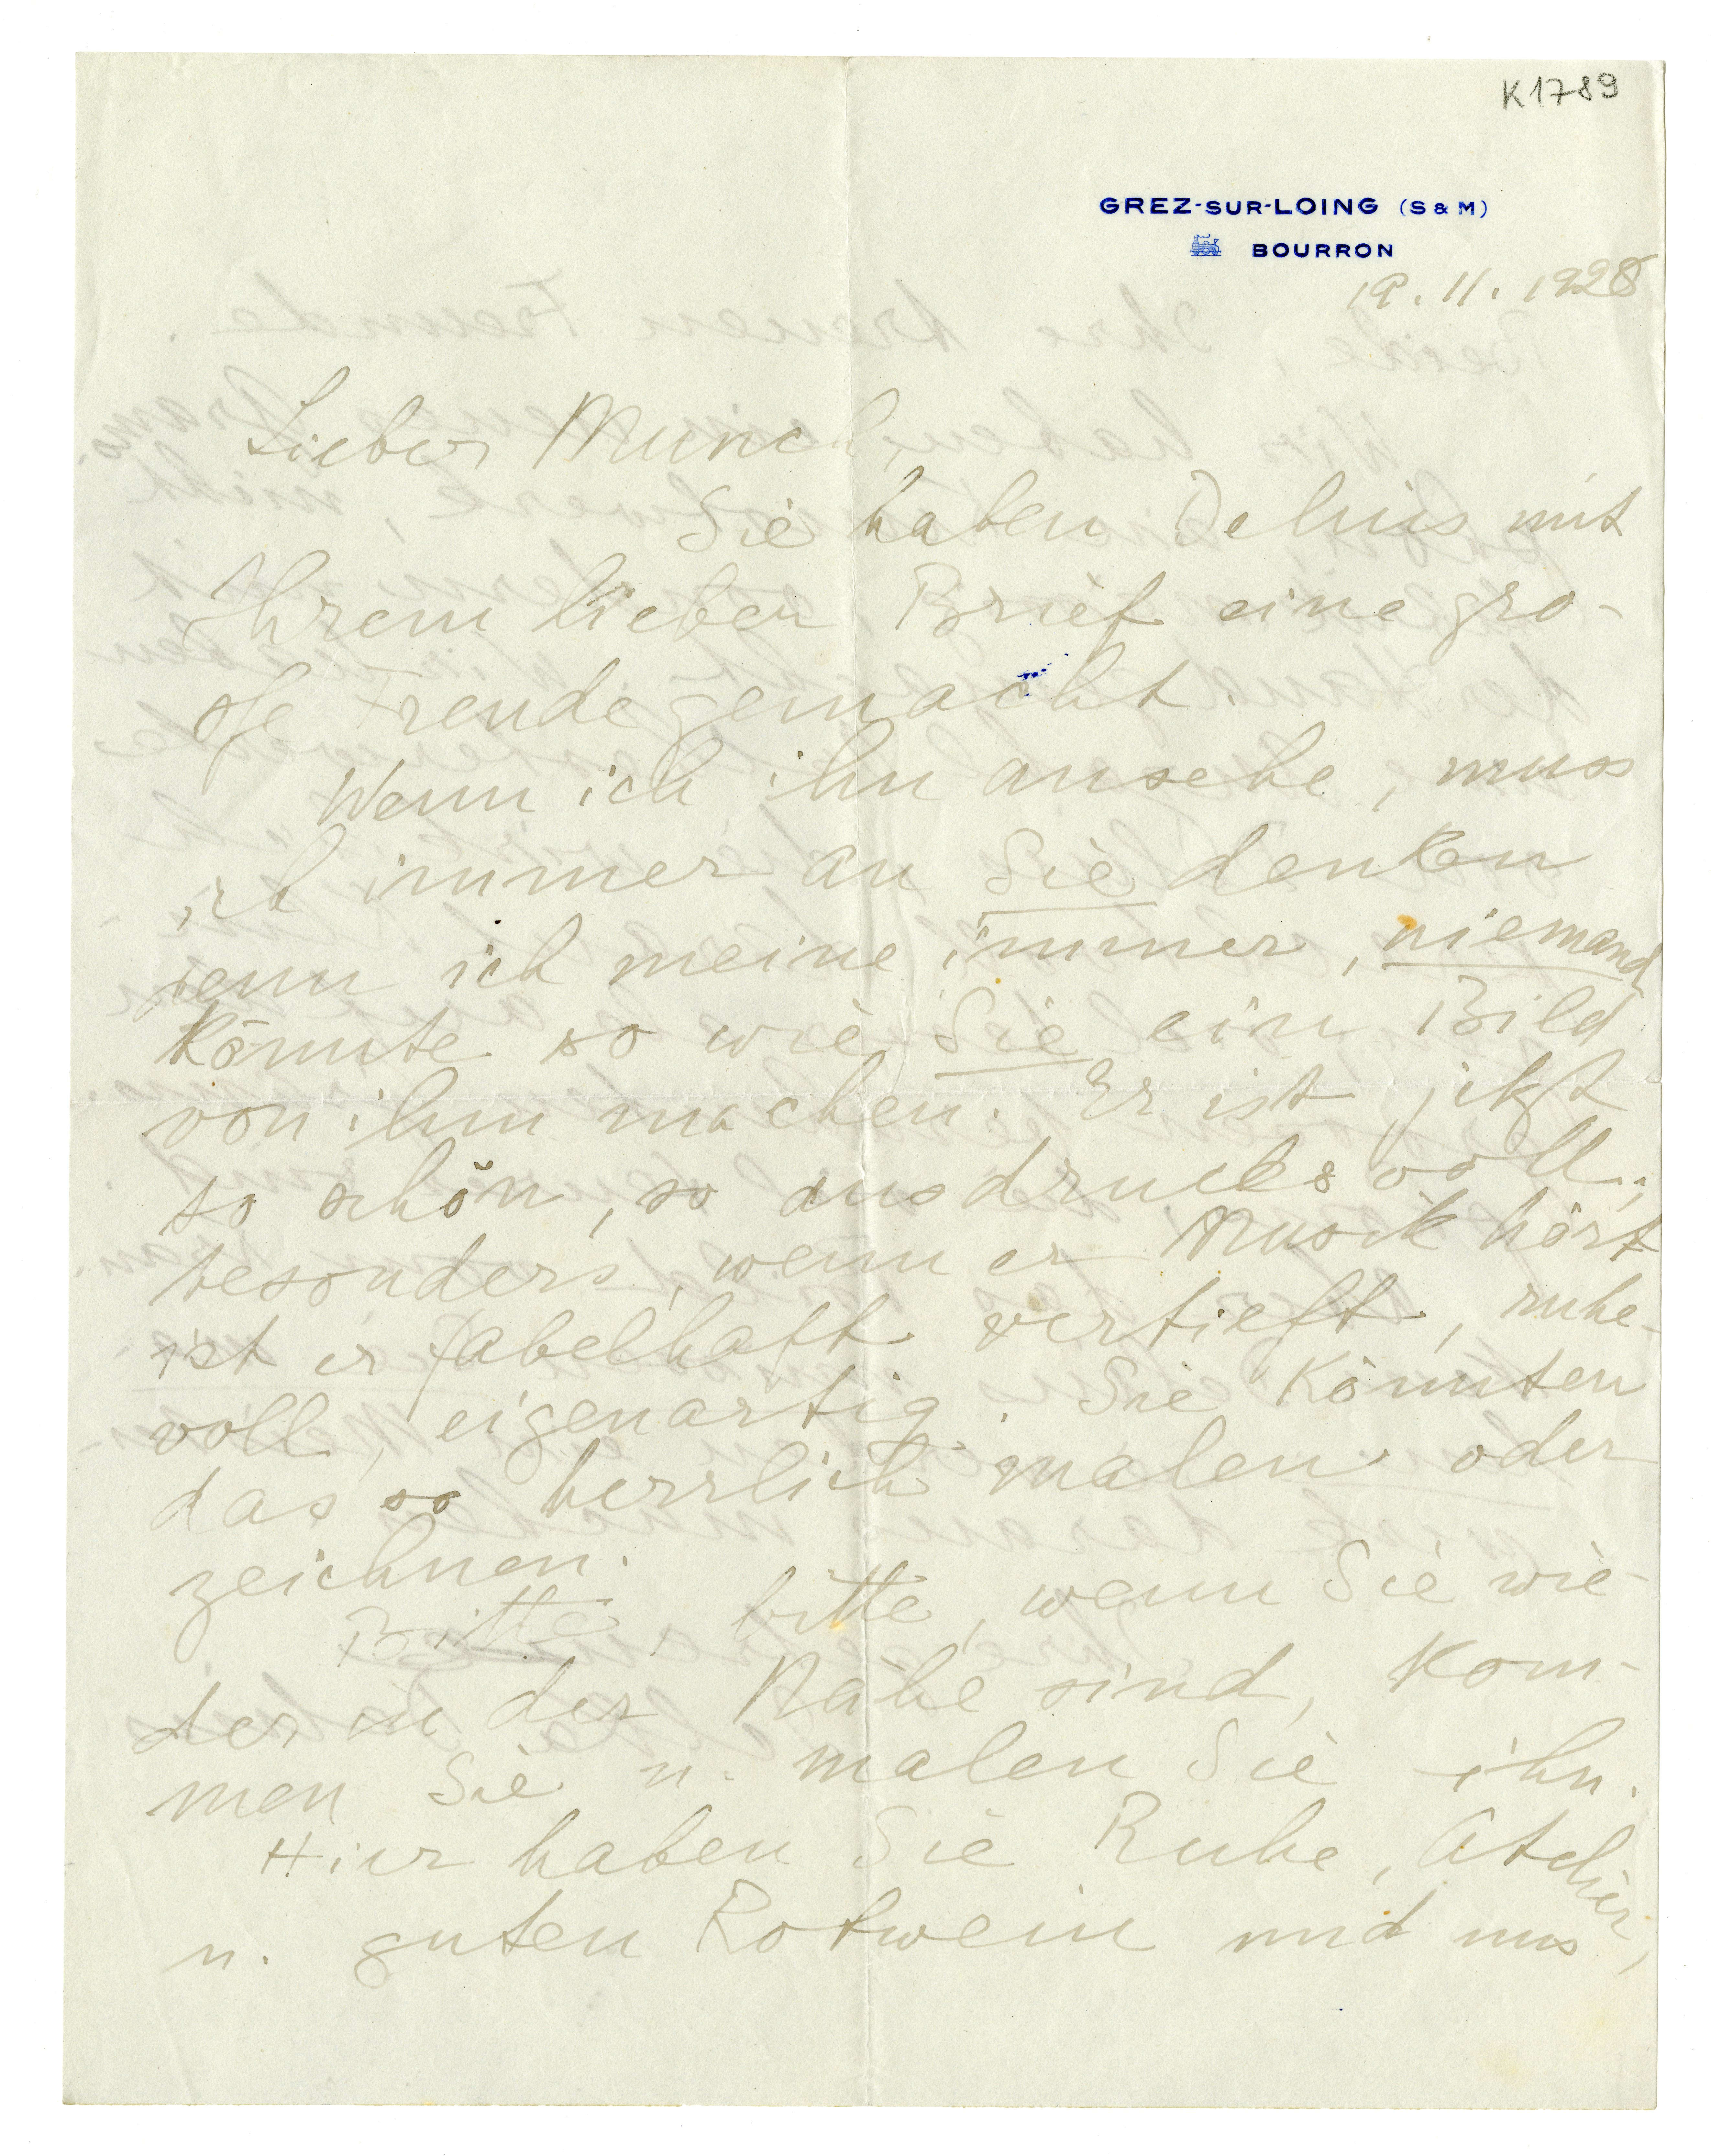 K1789
GREZ-SUR-LOING (S & M)
BOURRON
19. 11. 1928
Lieber Munch,
Sie haben Delius mit
Ihrem lieben Brief eine gro-
ße Freude gemacht.
Wenn ich ihn ansehe, muss
ich immer an Sie denken
denn ich meine immer, niemand
könnte so wie Sie ein Bild
von ihm machen. Er ist jetzt
so schön, so ausdrucksvoll;
besonders, wenn er Musik hört
ist er fabelhaft vertieft, ruhe-
voll, eigenartig. Sie könnten
das so herrlich malen oder
zeichnen.
Bitte, bitte, wenn Sie wie-
der in der Nähe sind, kom-
men Sie u. malen Sie ihn.
Hier haben Sie Ruhe, Atelier,
u. guten Rotwein und uns